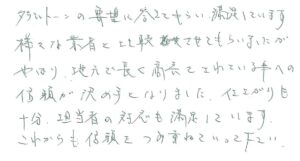 グランドトーンの要望に答えてもらい満足しています
様々な業者と比較させてもらいましたが
やはり、地元で長く商売をされている事への
信頼が決め手となりました。仕上がりも
十分、担当者の対応も満足しています。
これからも信頼をつみ重ねていって下さい